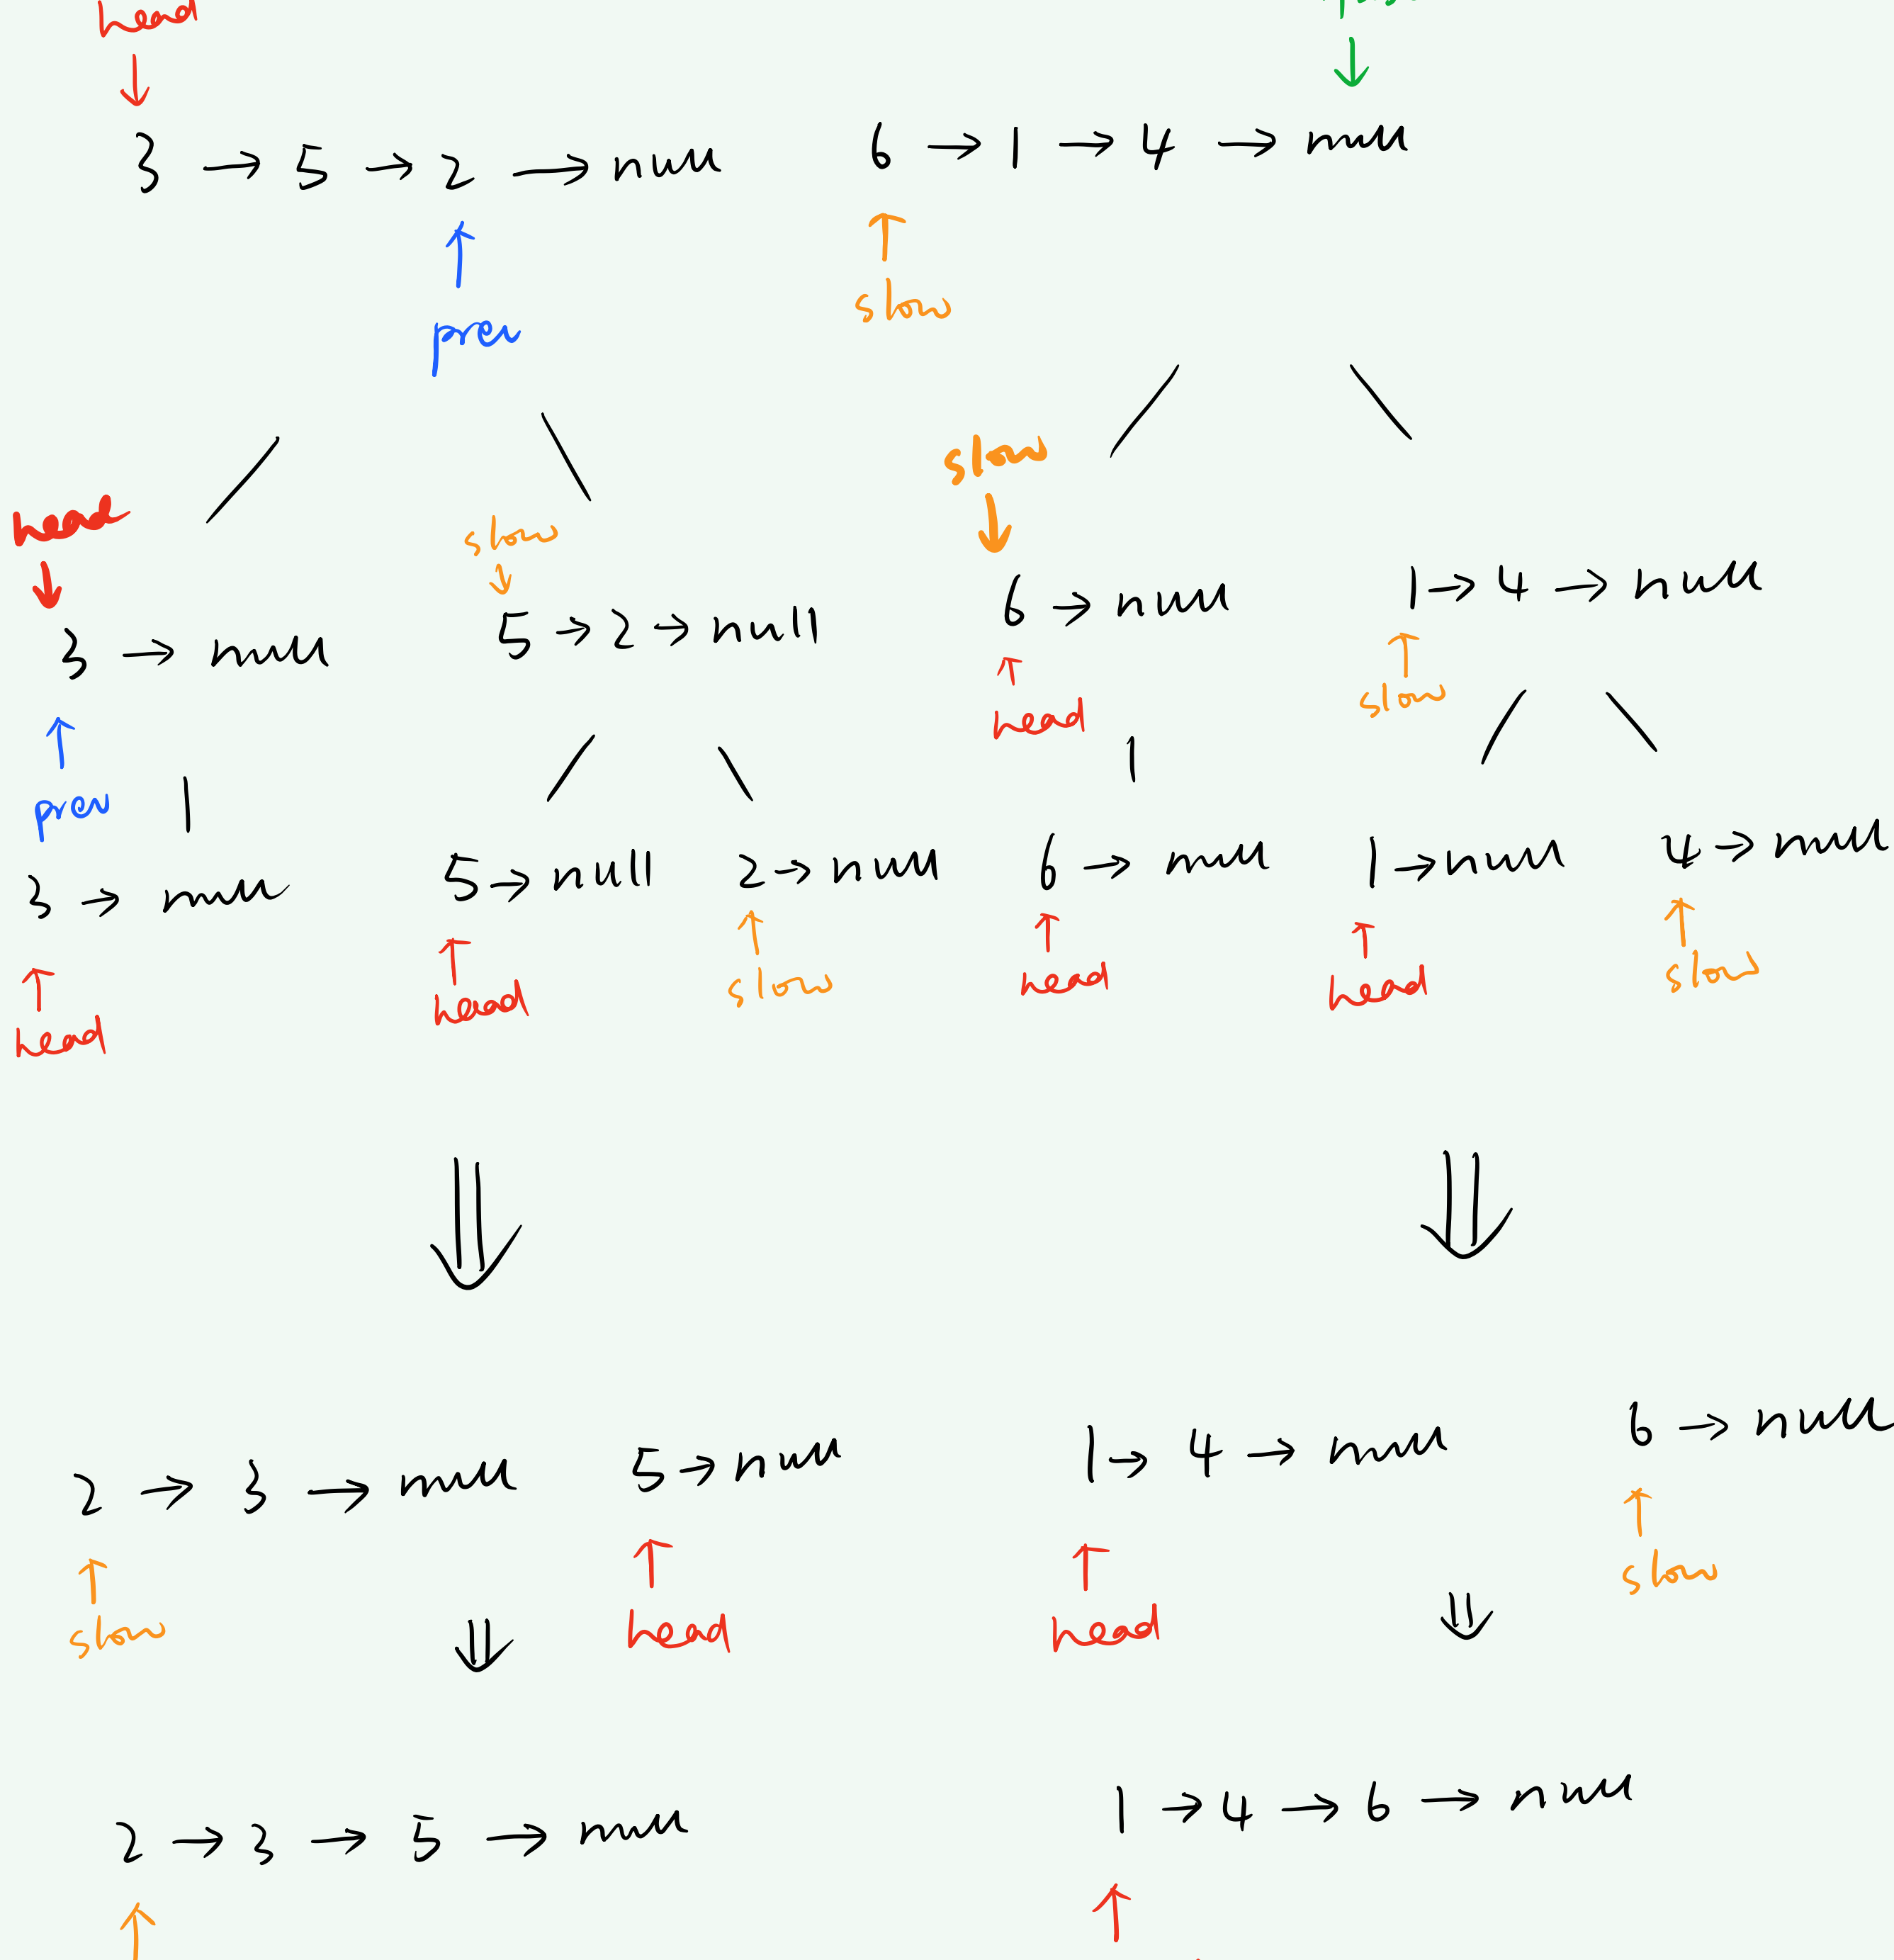 head
3 → 5 → 2 → null 6 → 1 → 4 → null
prev slow
head slow slow
3 → null 5 → 2 → null 6 → null 1 → 4 → null
prev head slow
3 → null 5 → null 2 → null 6 → null 1 → null 4 → null
head head slow head head slow
2 → 3 → null 5 → null 1 → 4 → null 6 → null
slow head head slow
2 → 3 → 5 → null 1 → 4 → 6 → null